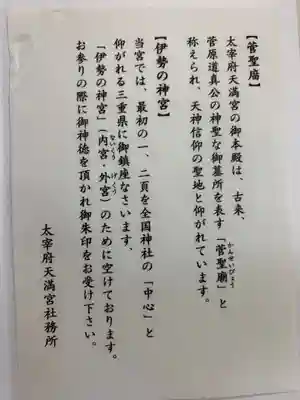 【菅聖廟】
太宰府天満宮の御本殿は、古来、
菅原道真公の神聖な御墓所を表す「菅聖廟」と
かんせいびょう
称えられ、天神信仰の聖地と仰がれています。
【伊勢の神宮】
当宮では、最初の一、二頁を全国神社の「中心」と
仰がれる三重県に御鎮座なさいます、
「伊勢の神宮」（内宮・外宮）のために空けております。
ないくう げくう
お参りの際に御神徳を頂かれ御朱印をお受け下さい。
太宰府天満宮社務所